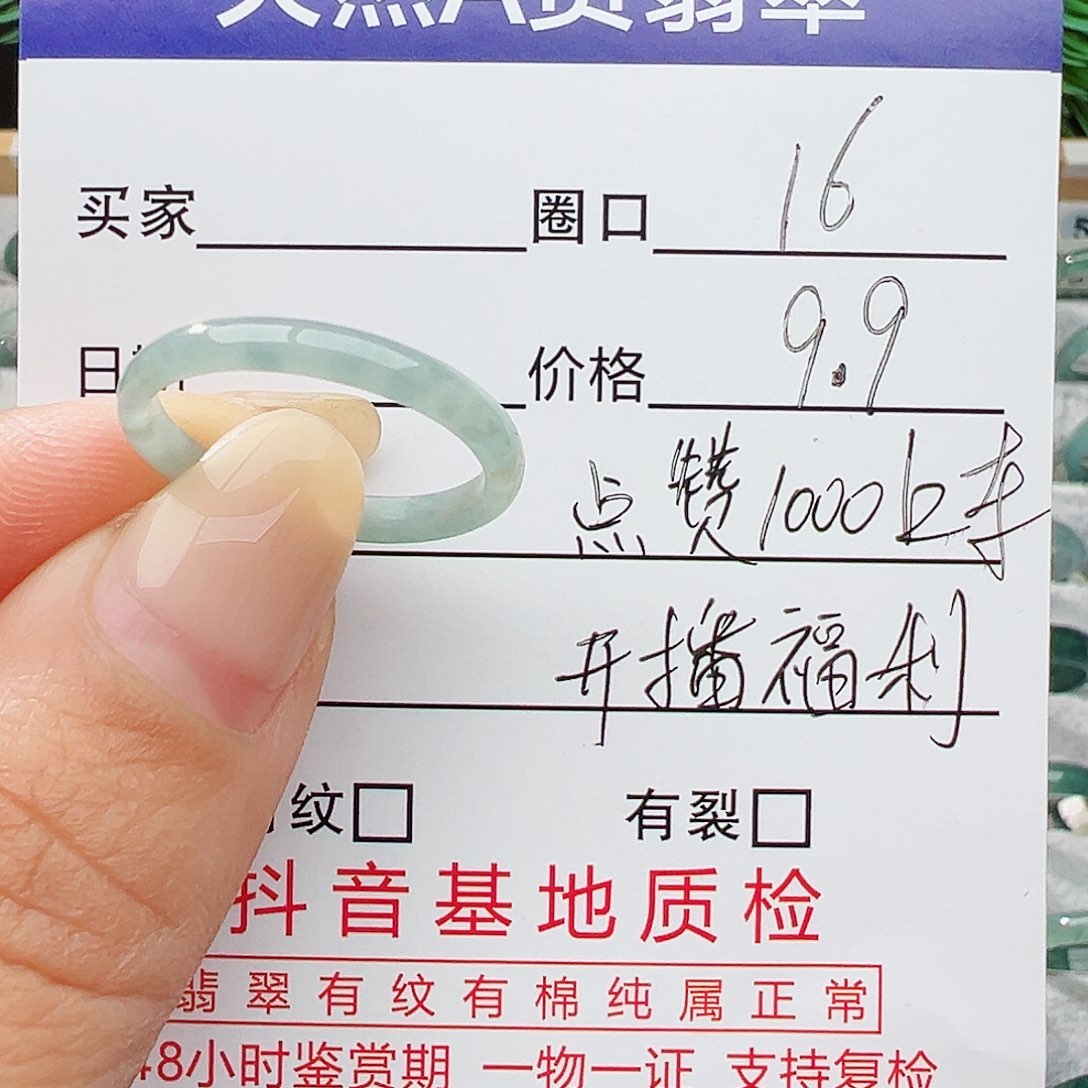 天然A货翡翠
买家 圈口 16
日期 价格 9.9
点赞1000上车
开播福利
有纹 有裂
抖音基地质检
翡翠有纹有棉纯属正常
48小时鉴赏期 一物一证 支持复检